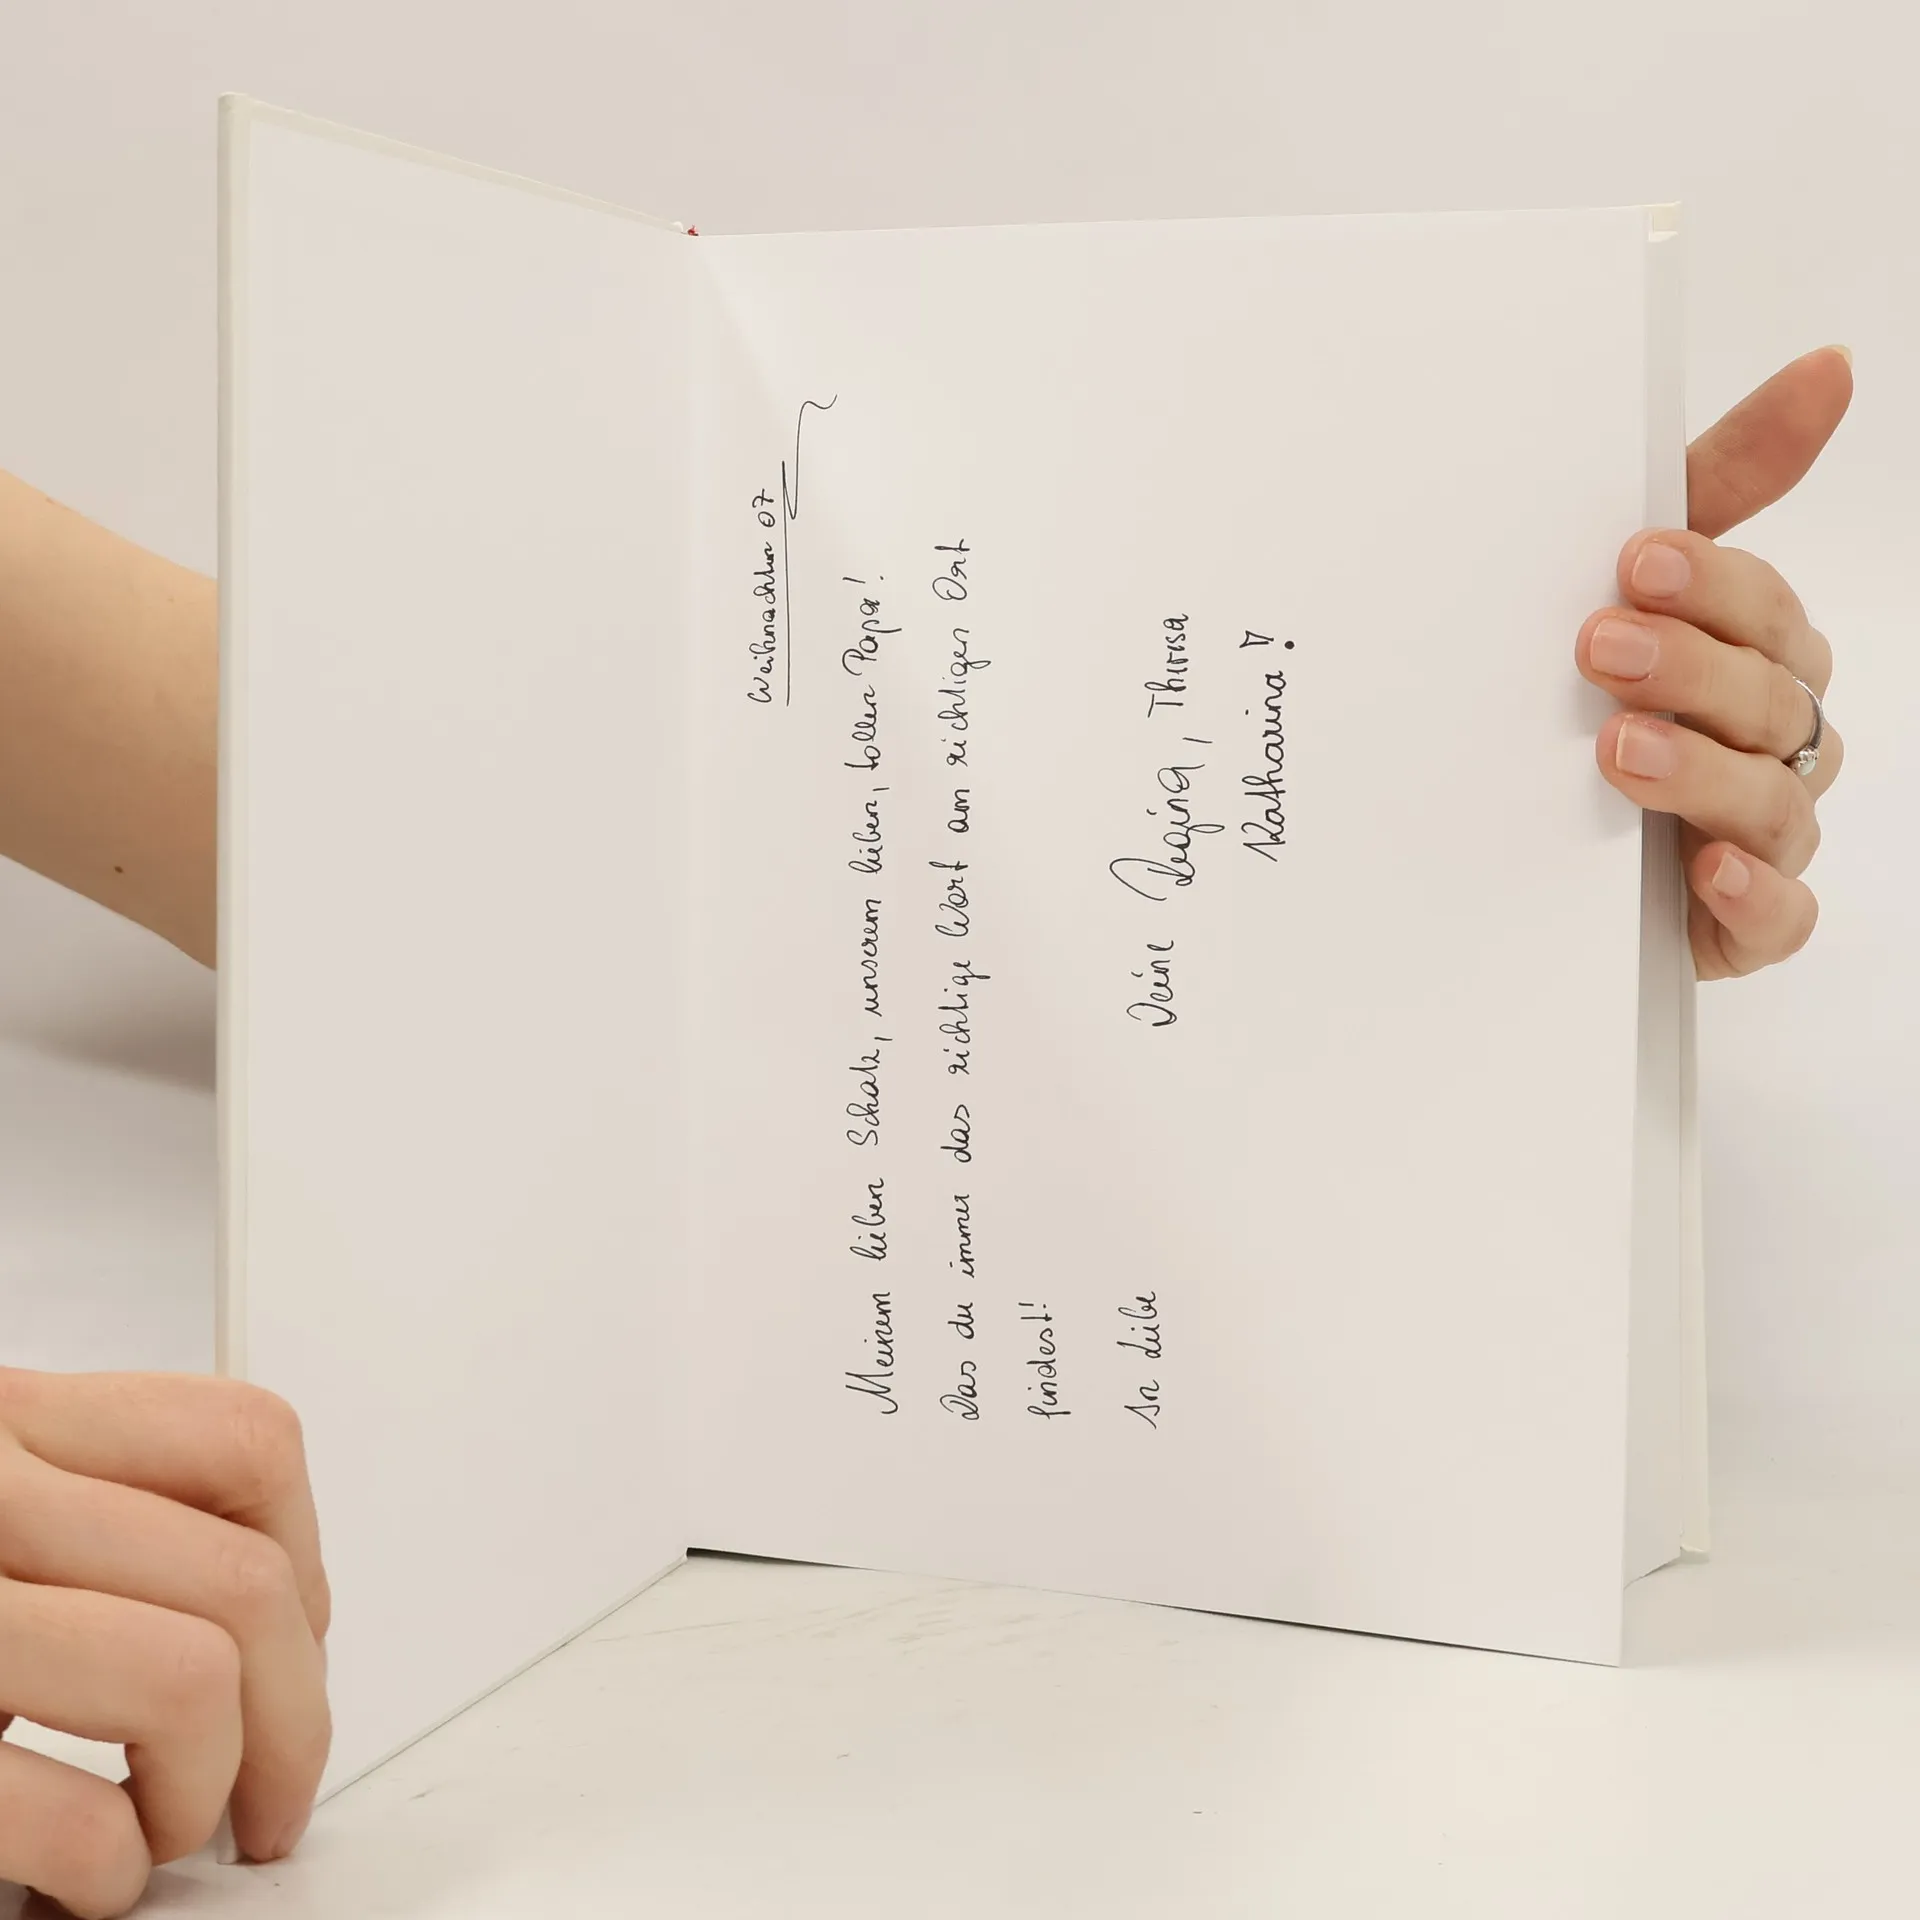 Weihnachten 07
Meinem lieben Schatz, unserem lieben, tollen Papa!
Das du immer das richtige Wort am richtigen Ort
findest!
In Liebe Deine Regina, Theresa
Katharina!